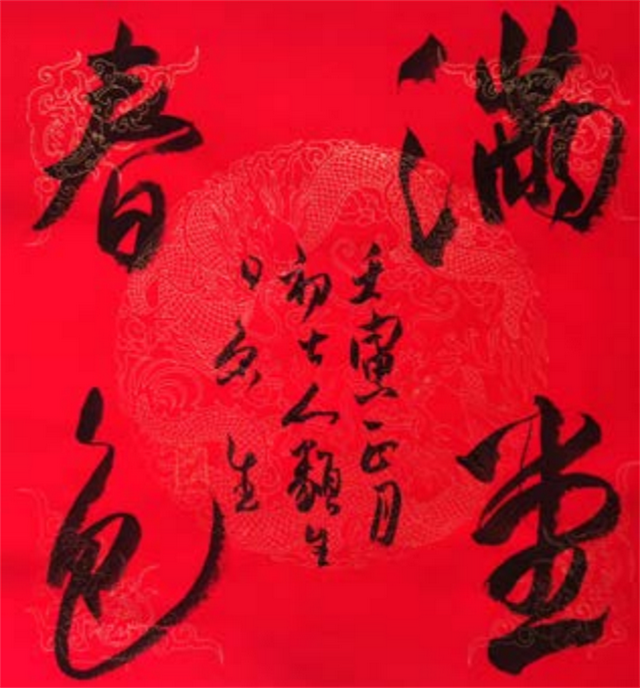 满堂
春色
壬寅正月
初七人类生
日
生